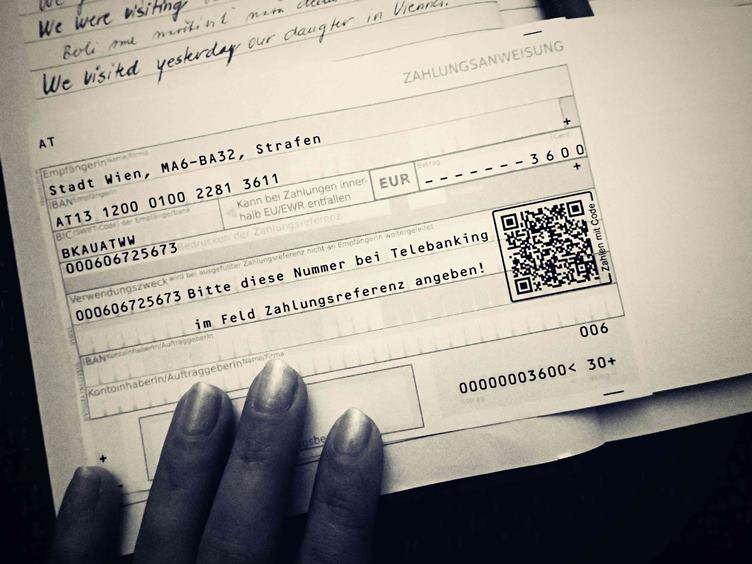 We were visiting
We visited yesterday our daugter in Vienna.
ZAHLUNGSANWEISUNG
AT
EmpfängerIn Name/Firma
Stadt Wien, MA6-BA32, Strafen
IBAN EmpfängerIn
AT13 1200 0100 2281 3611
Kann bei Zahlungen inner-
halb EU/EWR entfallen
EUR
Betrag
Cent
-------3600
BIC (SWIFT-Code) der Empfängerbank
BKAUATWW
000606725673
Verwendungszweck wird bei ausgefüllter Zahlungsreferenz nicht an Empfängerin weitergeleitet
000606725673 Bitte diese Nummer bei Telebanking
im Feld Zahlungsreferenz angeben!
Zahlen mit Code
IBAN KontoinhaberIn/AuftraggeberIn
KontoinhaberIn/AuftraggeberIn Name/Firma
006
00000003600< 30+
Betrag